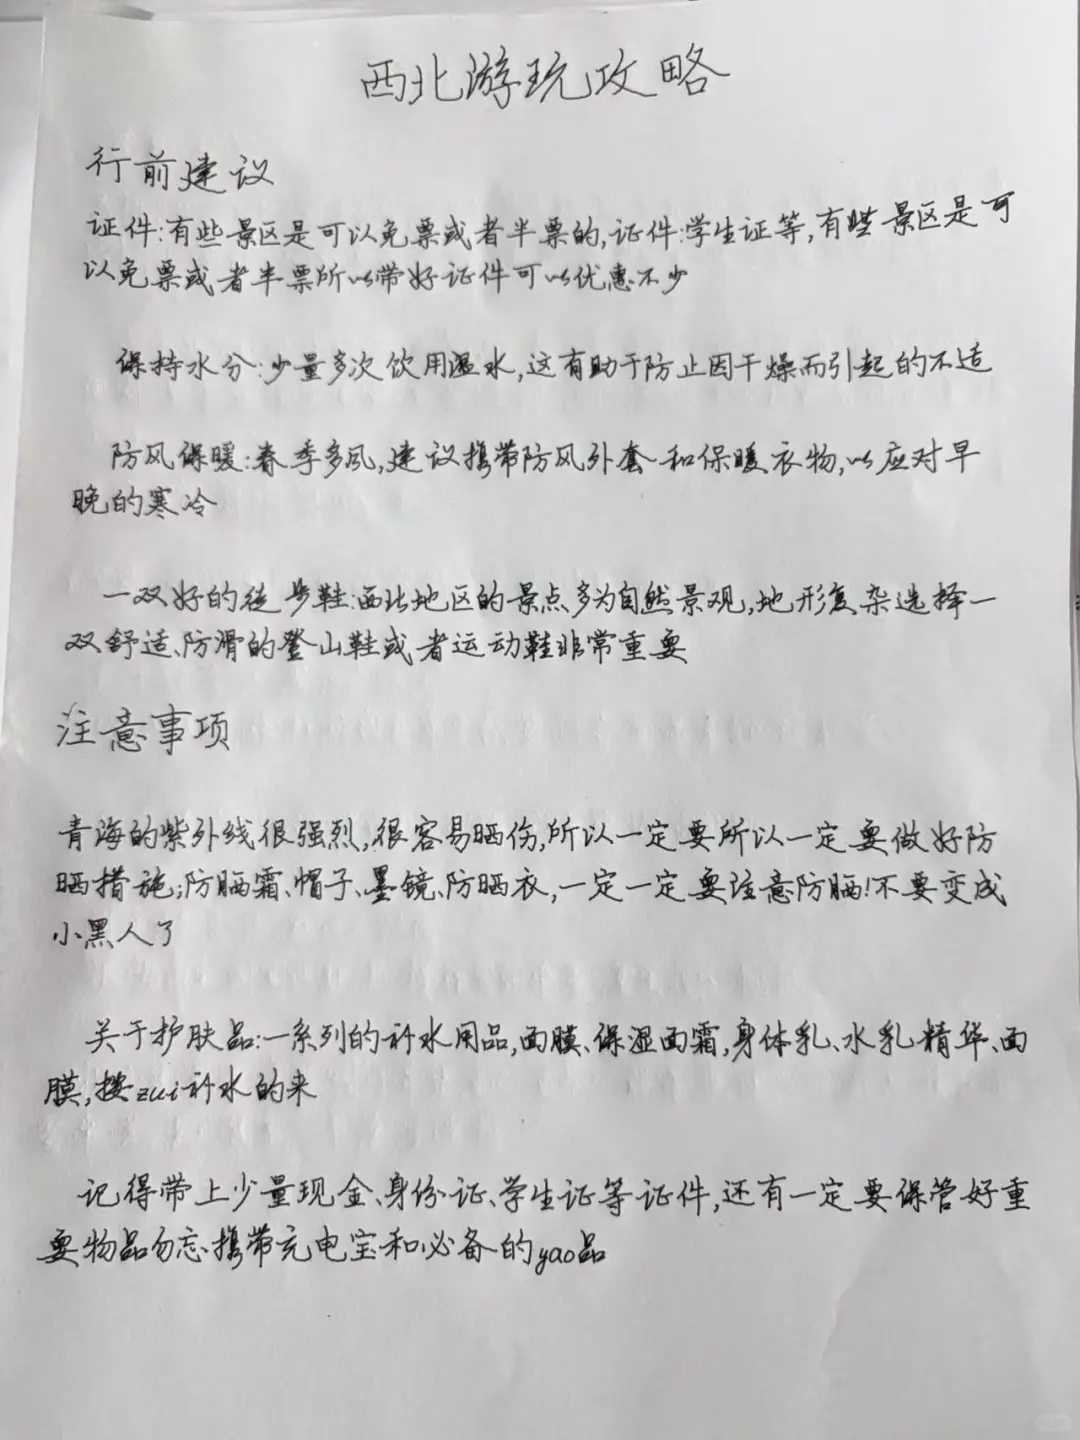 西北游玩攻略
行前建议
证件:有些景区是可以免票或者半票的,证件:学生证等,有些景区是可
以免票或者半票所以带好证件可以优惠不少
保持水分:少量多次饮用温水,这有助于防止因干燥而引起的不适
防风保暖:春季多风,建议携带防风外套和保暖衣物,以应对早
晚的寒冷
一双好的徒步鞋:西北地区的景点多为自然景观,地形复杂选择一
双舒适、防滑的登山鞋或者运动鞋非常重要
注意事项
青海的紫外线很强烈,很容易晒伤,所以一定要所以一定要做好防
晒措施;防晒霜、帽子、墨镜、防晒衣,一定一定要注意防晒!不要变成
小黑人了
关于护肤品:一系列的补水用品,面膜、保湿面霜,身体乳、水乳精华、面
膜,按zui补水的来
记得带上少量现金、身份证、学生证等证件,还有一定要保管好重
要物品勿忘携带充电宝和必备的yao品